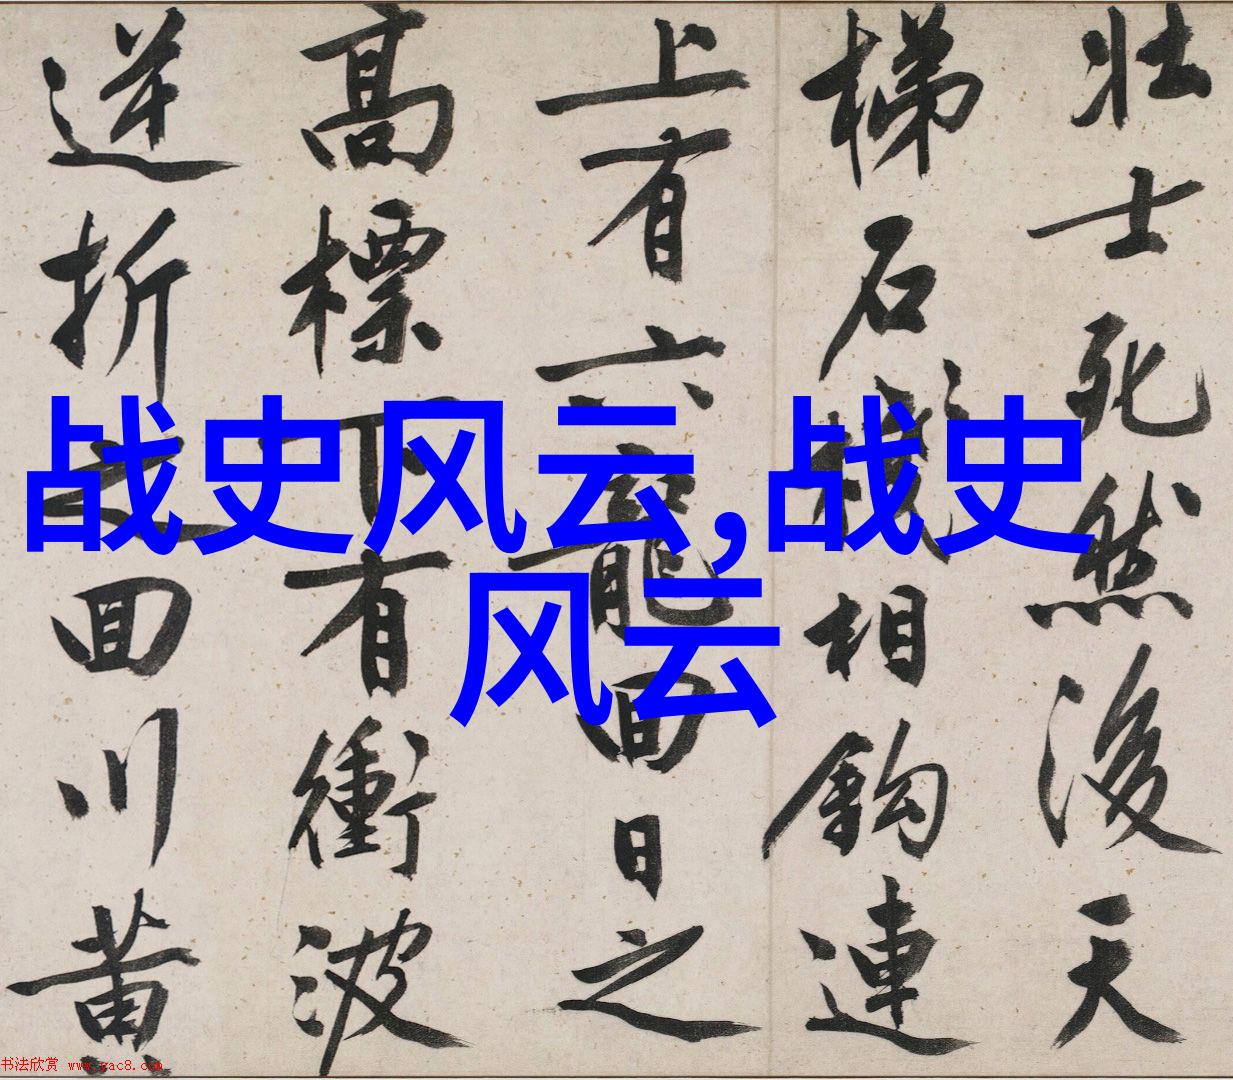 壮士死然後天
梯石棧相鈎連
上有六龍回日之
高標下有衝波
逆折之回川黄
战史风云,战史
风云
书法欣赏 www.yac8.com